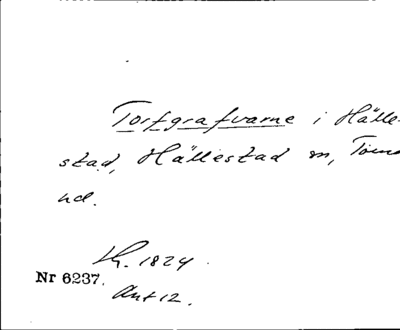 Torfgrafvarne i Hälle-
stad, Hällestad sn, Torna
hd.
Lh. 1824.
Nr 6237.
Ant 12.